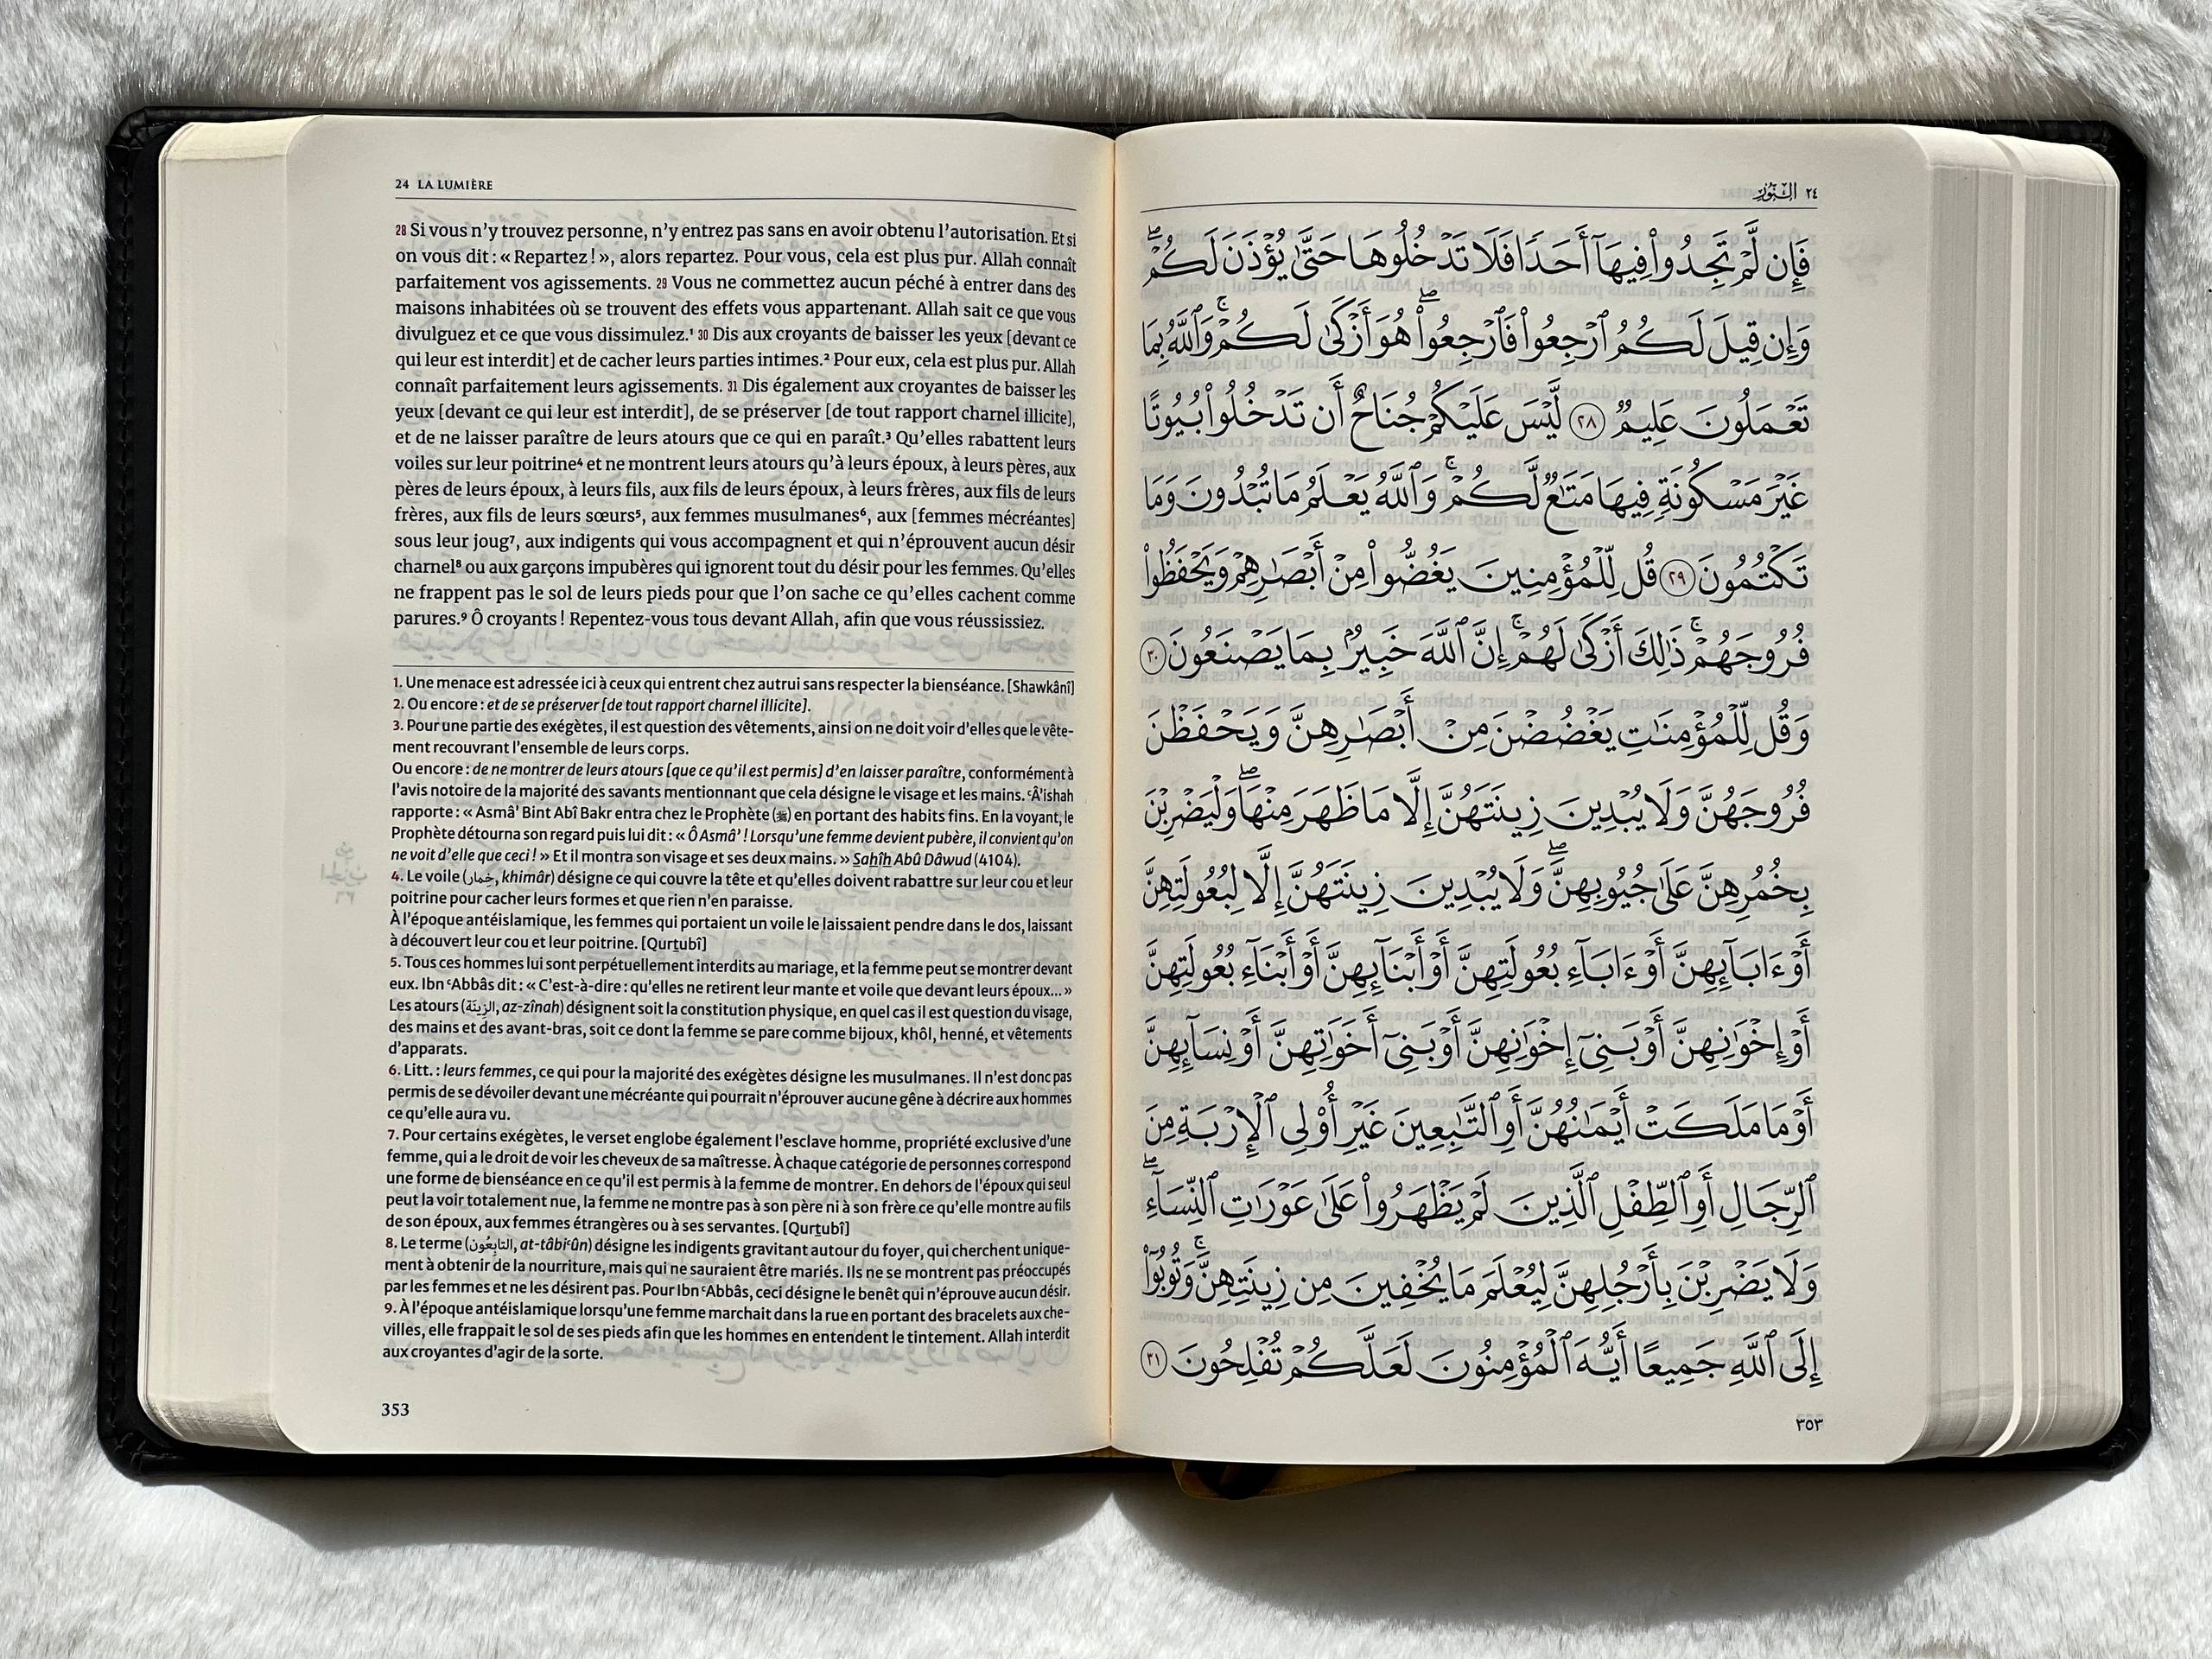 24 LA LUMIÈRE
28 Si vous n’y trouvez personne, n’y entrez pas sans en avoir obtenu l’autorisation. Et si
on vous dit : « Repartez ! », alors repartez. Pour vous, cela est plus pur. Allah connaît
parfaitement vos agissements. 29 Vous ne commettez aucun péché à entrer dans des
maisons inhabitées où se trouvent des effets vous appartenant. Allah sait ce que vous
divulguez et ce que vous dissimulez.¹ 30 Dis aux croyants de baisser les yeux [devant ce
qui leur est interdit] et de cacher leurs parties intimes.² Pour eux, cela est plus pur. Allah
connaît parfaitement leurs agissements. 31 Dis également aux croyantes de baisser les
yeux [devant ce qui leur est interdit], de se préserver [de tout rapport charnel illicite],
et de ne laisser paraître de leurs atours que ce qui en paraît.³ Qu’elles rabattent leurs
voiles sur leur poitrine⁴ et ne montrent leurs atours qu’à leurs époux, à leurs pères, aux
pères de leurs époux, à leurs fils, aux fils de leurs époux, à leurs frères, aux fils de leurs
frères, aux fils de leurs sœurs⁵, aux femmes musulmanes⁶, aux [femmes mécréantes]
sous leur joug⁷, aux indigents qui vous accompagnent et qui n’éprouvent aucun désir
charnel⁸ ou aux garçons impubères qui ignorent tout du désir pour les femmes. Qu’elles
ne frappent pas le sol de leurs pieds pour que l’on sache ce qu’elles cachent comme
parures.⁹ Ô croyants ! Repentez-vous tous devant Allah, afin que vous réussissiez.
1. Une menace est adressée ici à ceux qui entrent chez autrui sans respecter la bienséance. [Shawkânî]
2. Ou encore : et de se préserver [de tout rapport charnel illicite].
3. Pour une partie des exégètes, il est question des vêtements, ainsi on ne doit voir d’elles que le vête-
ment recouvrant l’ensemble de leurs corps.
Ou encore : de ne montrer de leurs atours [que ce qu’il est permis] d’en laisser paraître, conformément à
l’avis notoire de la majorité des savants mentionnant que cela désigne le visage et les mains. ʿÂ’ishah
rapporte : « Asmâ’ Bint Abî Bakr entra chez le Prophète (ﷺ) en portant des habits fins. En la voyant, le
Prophète détourna son regard puis lui dit : « Ô Asmâ’ ! Lorsqu’une femme devient pubère, il convient qu’on
ne voit d’elle que ceci ! » Et il montra son visage et ses deux mains. » Sahîh Abû Dâwud (4104).
4. Le voile (خِمار, khimâr) désigne ce qui couvre la tête et qu’elles doivent rabattre sur leur cou et leur
poitrine pour cacher leurs formes et que rien n’en paraisse.
À l’époque antéislamique, les femmes qui portaient un voile le laissaient pendre dans le dos, laissant
à découvert leur cou et leur poitrine. [Qurtubî]
5. Tous ces hommes lui sont perpétuellement interdits au mariage, et la femme peut se montrer devant
eux. Ibn ʿAbbâs dit : « C’est-à-dire : qu’elles ne retirent leur mante et voile que devant leurs époux... »
Les atours (الزِينَة, az-zînah) désignent soit la constitution physique, en quel cas il est question du visage,
des mains et des avant-bras, soit ce dont la femme se pare comme bijoux, khôl, henné, et vêtements
d’apparats.
6. Litt. : leurs femmes, ce qui pour la majorité des exégètes désigne les musulmanes. Il n’est donc pas
permis de se dévoiler devant une mécréante qui pourrait n’éprouver aucune gêne à décrire aux hommes
ce qu’elle aura vu.
7. Pour certains exégètes, le verset englobe également l’esclave homme, propriété exclusive d’une
femme, qui a le droit de voir les cheveux de sa maîtresse. À chaque catégorie de personnes correspond
une forme de bienséance en ce qu’il est permis à la femme de montrer. En dehors de l’époux qui seul
peut la voir totalement nue, la femme ne montre pas à son père ni à son frère ce qu’elle montre au fils
de son époux, aux femmes étrangères ou à ses servantes. [Qurtubî]
8. Le terme (التابِعُون, at-tâbiʿûn) désigne les indigents gravitant autour du foyer, qui cherchent unique-
ment à obtenir de la nourriture, mais qui ne sauraient être mariés. Ils ne se montrent pas préoccupés
par les femmes et ne les désirent pas. Pour Ibn ʿAbbâs, ceci désigne le benêt qui n’éprouve aucun désir.
9. À l’époque antéislamique lorsqu’une femme marchait dans la rue en portant des bracelets aux che-
villes, elle frappait le sol de ses pieds afin que les hommes en entendent le tintement. Allah interdit
aux croyantes d’agir de la sorte.
353
٢٤ النُّور
فَإِن لَّمْ تَجِدُوا۟ فِيهَآ أَحَدًا فَلَا تَدْخُلُوهَا حَتَّىٰ يُؤْذَنَ لَكُمْ ۖ
وَإِن قِيلَ لَكُمُ ٱرْجِعُوا۟ فَٱرْجِعُوا۟ ۖ هُوَ أَزْكَىٰ لَكُمْ ۚ وَٱللَّهُ بِمَا
تَعْمَلُونَ عَلِيمٌ ٢٨ لَّيْسَ عَلَيْكُمْ جُنَاحٌ أَن تَدْخُلُوا۟ بُيُوتًا
غَيْرَ مَسْكُونَةٍ فِيهَا مَتَـٰعٌ لَّكُمْ ۚ وَٱللَّهُ يَعْلَمُ مَا تُبْدُونَ وَمَا
تَكْتُمُونَ ٢٩ قُل لِّلْمُؤْمِنِينَ يَغُضُّوا۟ مِنْ أَبْصَـٰرِهِمْ وَيَحْفَظُوا۟
فُرُوجَهُمْ ۚ ذَٰلِكَ أَزْكَىٰ لَهُمْ ۗ إِنَّ ٱللَّهَ خَبِيرٌۢ بِمَا يَصْنَعُونَ ٣٠
وَقُل لِّلْمُؤْمِنَـٰتِ يَغْضُضْنَ مِنْ أَبْصَـٰرِهِنَّ وَيَحْفَظْنَ
فُرُوجَهُنَّ وَلَا يُبْدِينَ زِينَتَهُنَّ إِلَّا مَا ظَهَرَ مِنْهَا ۖ وَلْيَضْرِبْنَ
بِخُمُرِهِنَّ عَلَىٰ جُيُوبِهِنَّ ۖ وَلَا يُبْدِينَ زِينَتَهُنَّ إِلَّا لِبُعُولَتِهِنَّ
أَوْ ءَابَآئِهِنَّ أَوْ ءَابَآءِ بُعُولَتِهِنَّ أَوْ أَبْنَآئِهِنَّ أَوْ أَبْنَآءِ بُعُولَتِهِنَّ
أَوْ إِخْوَٰنِهِنَّ أَوْ بَنِىٓ إِخْوَٰنِهِنَّ أَوْ بَنِىٓ أَخَوَٰتِهِنَّ أَوْ نِسَآئِهِنَّ
أَوْ مَا مَلَكَتْ أَيْمَـٰنُهُنَّ أَوِ ٱلتَّـٰبِعِينَ غَيْرِ أُو۟لِى ٱلْإِرْبَةِ مِنَ
ٱلرِّجَالِ أَوِ ٱلطِّفْلِ ٱلَّذِينَ لَمْ يَظْهَرُوا۟ عَلَىٰ عَوْرَٰتِ ٱلنِّسَآءِ ۖ
وَلَا يَضْرِبْنَ بِأَرْجُلِهِنَّ لِيُعْلَمَ مَا يُخْفِينَ مِن زِينَتِهِنَّ ۚ وَتُوبُوٓا۟
إِلَى ٱللَّهِ جَمِيعًا أَيُّهَ ٱلْمُؤْمِنُونَ لَعَلَّكُمْ تُفْلِحُونَ ٣١
٣٥٣